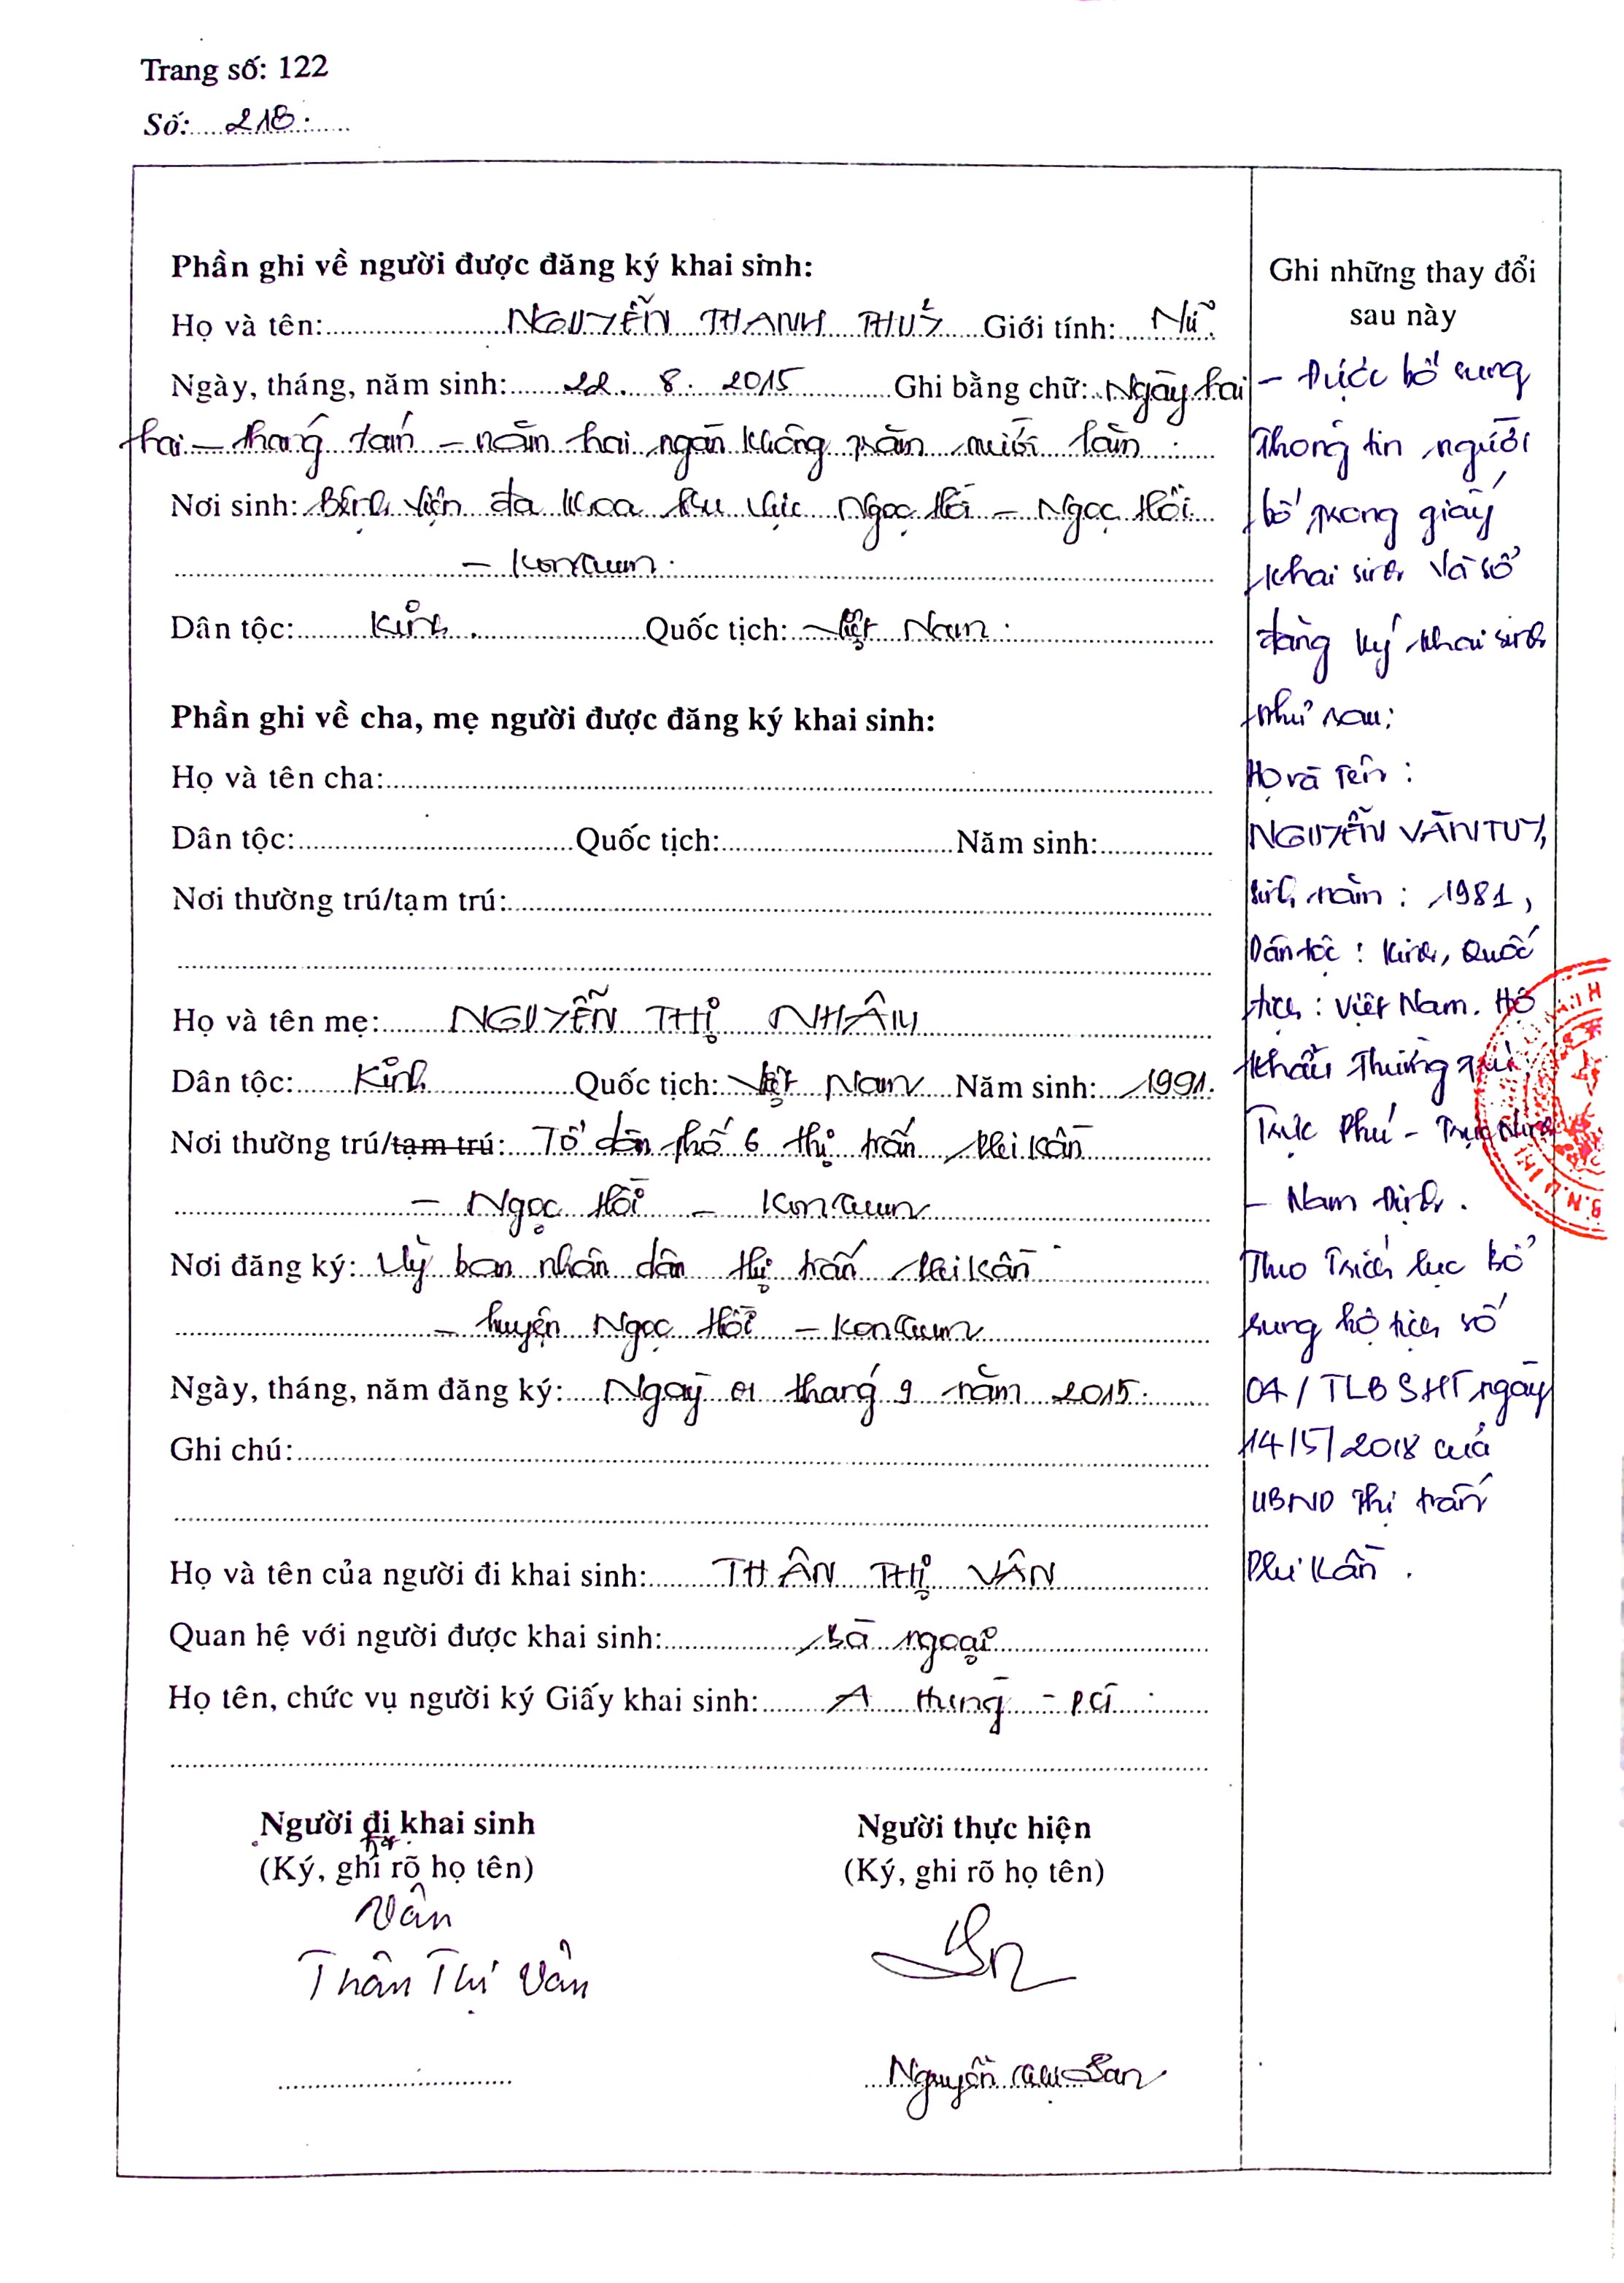 Trang số: 122
Số: 218.
Phần ghi về người được đăng ký khai sinh:
Họ và tên: NGUYỄN THANH THUỶ Giới tính: Nữ.
Ngày, tháng, năm sinh: 22. 8. 2015 Ghi bằng chữ: Ngày hai
hai – tháng tám – năm hai ngàn không trăm mười lăm.
Nơi sinh: Bệnh viện đa khoa khu vực Ngọc Hồi – Ngọc Hồi
– KonTum.
Dân tộc: Kinh. Quốc tịch: Việt Nam.
Phần ghi về cha, mẹ người được đăng ký khai sinh:
Họ và tên cha:
Dân tộc: Quốc tịch: Năm sinh:
Nơi thường trú/tạm trú:
Họ và tên mẹ: NGUYỄN THỊ NHÂM
Dân tộc: Kinh Quốc tịch: Việt Nam Năm sinh: 1991.
Nơi thường trú/tạm trú: Tổ dân phố 6 thị trấn Plei Kần
– Ngọc Hồi – KonTum
Nơi đăng ký: Uỷ ban nhân dân thị trấn Plei Kần
– huyện Ngọc Hồi – KonTum
Ngày, tháng, năm đăng ký: Ngày 01 tháng 9 năm 2015.
Ghi chú:
Họ và tên của người đi khai sinh: THÂN THỊ VÂN
Quan hệ với người được khai sinh: Bà ngoại
Họ tên, chức vụ người ký Giấy khai sinh: A Hùng – PCT
Người đi khai sinh
(Ký, ghi rõ họ tên)
Vân
Thân Thị Vân
Người thực hiện
(Ký, ghi rõ họ tên)
Nguyễn San
Ghi những thay đổi
sau này
– Được bổ sung
Thông tin người
bố trong giấy
khai sinh và sổ
đăng ký khai sinh
như sau:
Họ và Tên:
NGUYỄN VĂN TUY,
sinh năm: 1981,
Dân tộc: Kinh, Quốc
tịch: Việt Nam. Hộ
khẩu Thường trú
Trực Phú – Trực Ninh
– Nam Định.
Theo Trích lục bổ
sung hộ tịch số
04/TLBSHT ngày
14/5/2018 của
UBND Thị trấn
Plei Kần.